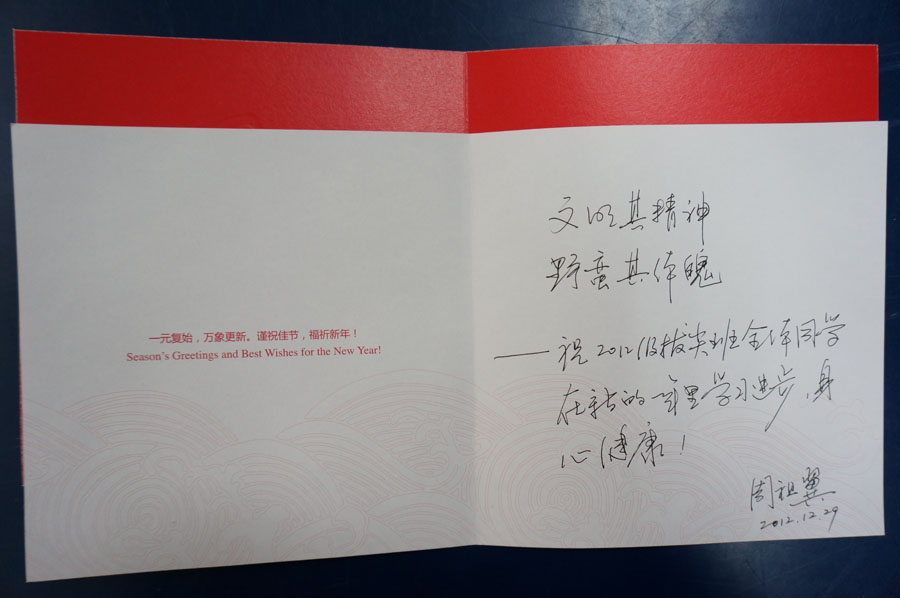 一元复始，万象更新。谨祝佳节，福祈新年！
Season's Greetings and Best Wishes for the New Year!
文明其精神
野蛮其体魄
——祝2012级拔尖班全体同学
在新的一年里学习进步，身
心健康！
周祖翼
2012.12.29